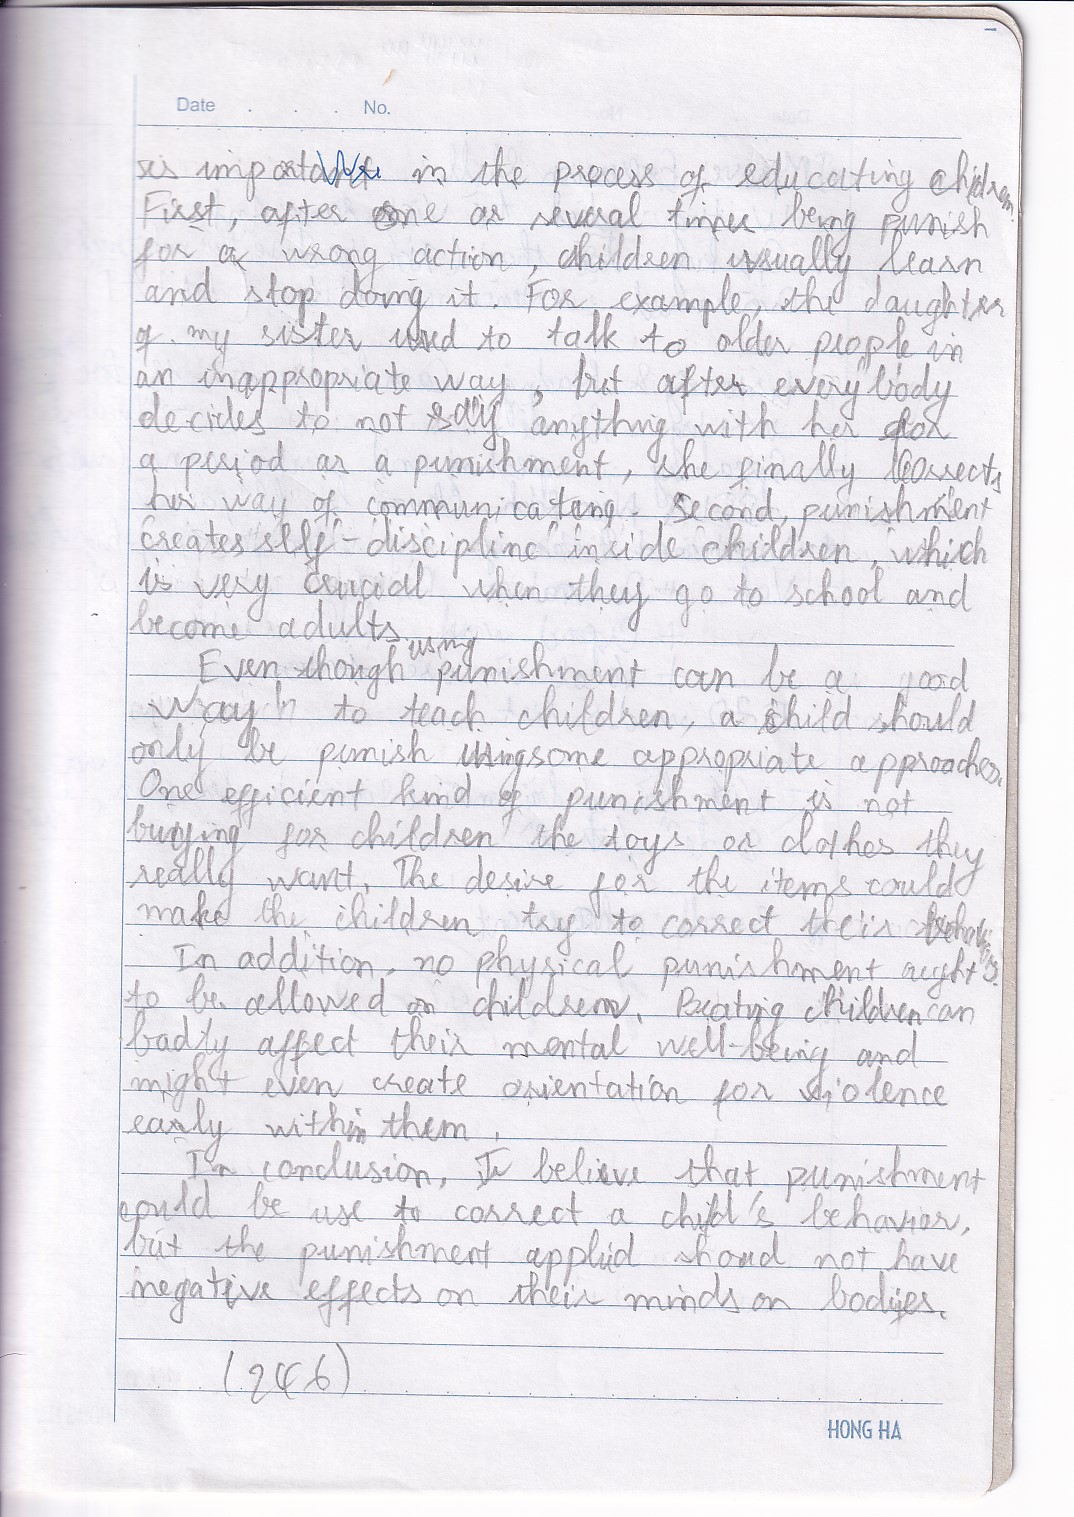 Date . . . No.
is important in the process of educating children.
First, after one or several times being punish
for a wrong action, children usually learn
and stop doing it. For example, the daughter
of my sister used to talk to older people in
an inappropriate way, but after everybody
decides to not say anything with her for
a period as a punishment, she finally corrects
her way of communicating. Second, punishment
creates self-discipline inside children, which
is very crucial when they go to school and
become adults.
Even though using punishment can be a good
way to teach children, a child should
only be punish using some appropriate approaches.
One efficient kind of punishment is not
buying for children the toys or clothes they
really want. The desire for the items could
make the children try to correct their behaviors.
In addition, no physical punishment aught
to be allowed on children. Beating children can
badly affect their mental well-being and
might even create orientation for violence
early within them.
In conclusion, I believe that punishment
could be use to correct a child's behavior,
but the punishment applied shoud not have
negative effects on their minds or bodyes.
(246)
HONG HA